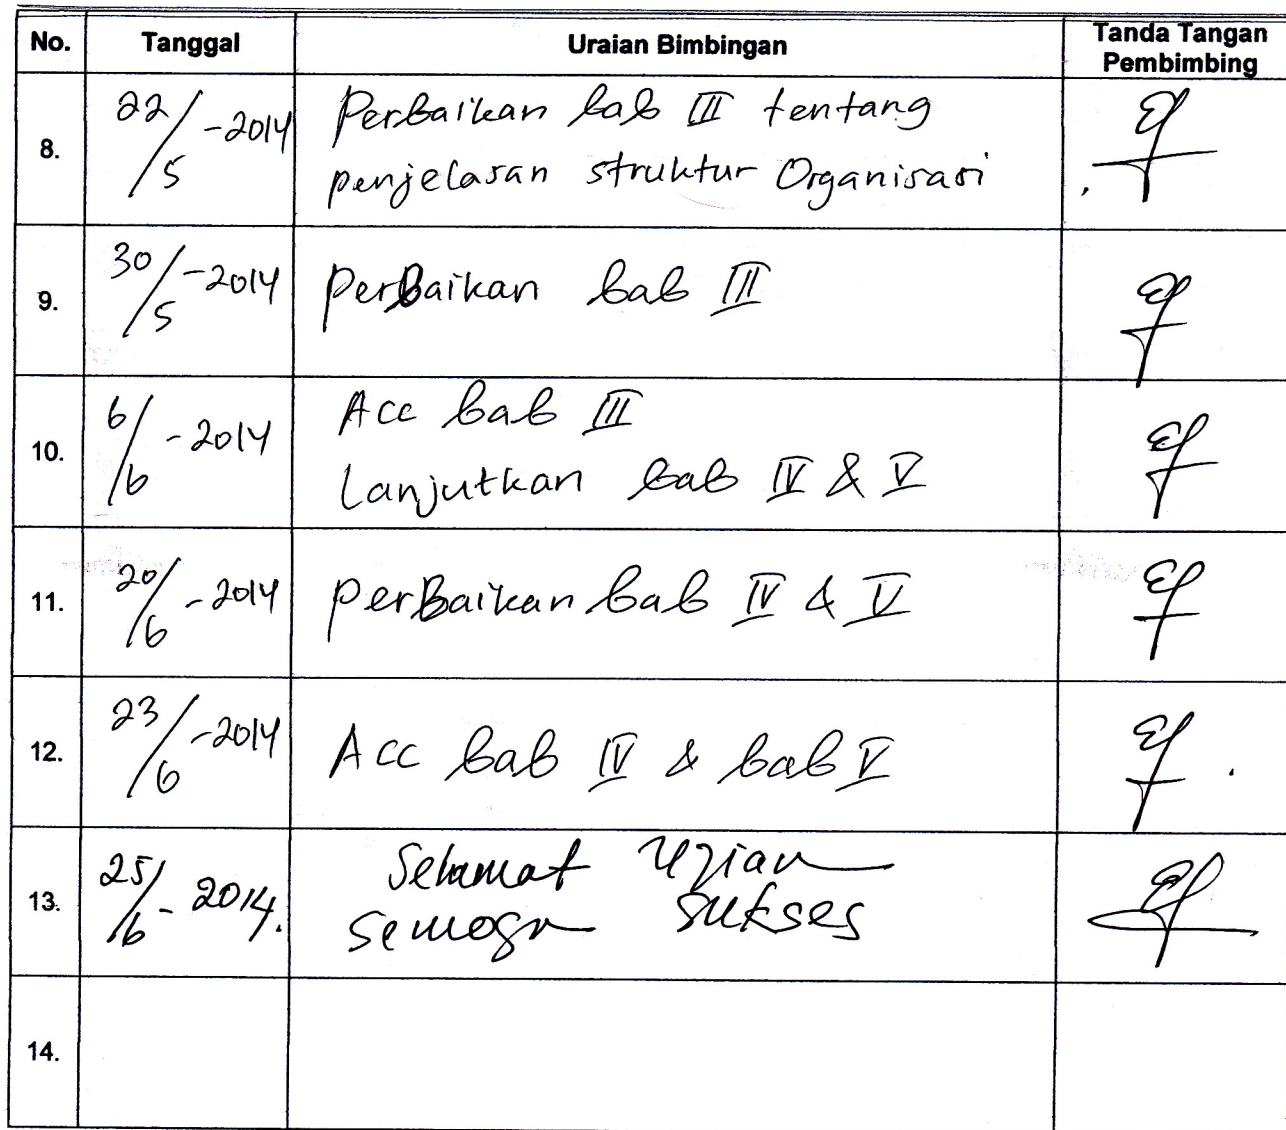 No. Tanggal Uraian Bimbingan Tanda Tangan Pembimbing
8. 22/5 - 2014 Perbaikan bab III tentang
penjelasan struktur Organisasi
9. 30/5 - 2014 perbaikan bab III
10. 6/6 - 2014 Acc bab III
Lanjutkan bab IV & V
11. 20/6 - 2014 perbaikan bab IV & V
12. 23/6 - 2014 Acc bab IV & bab V
13. 25/6 - 2014. Selamat Ujian
Semoga Sukses
14.